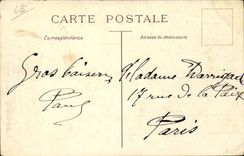 65
CARTE POSTALE
Correspondance
Adresse du destinataire
Gros baisers
Paul
Madame Darrigade
17 rue de la Paix
Paris